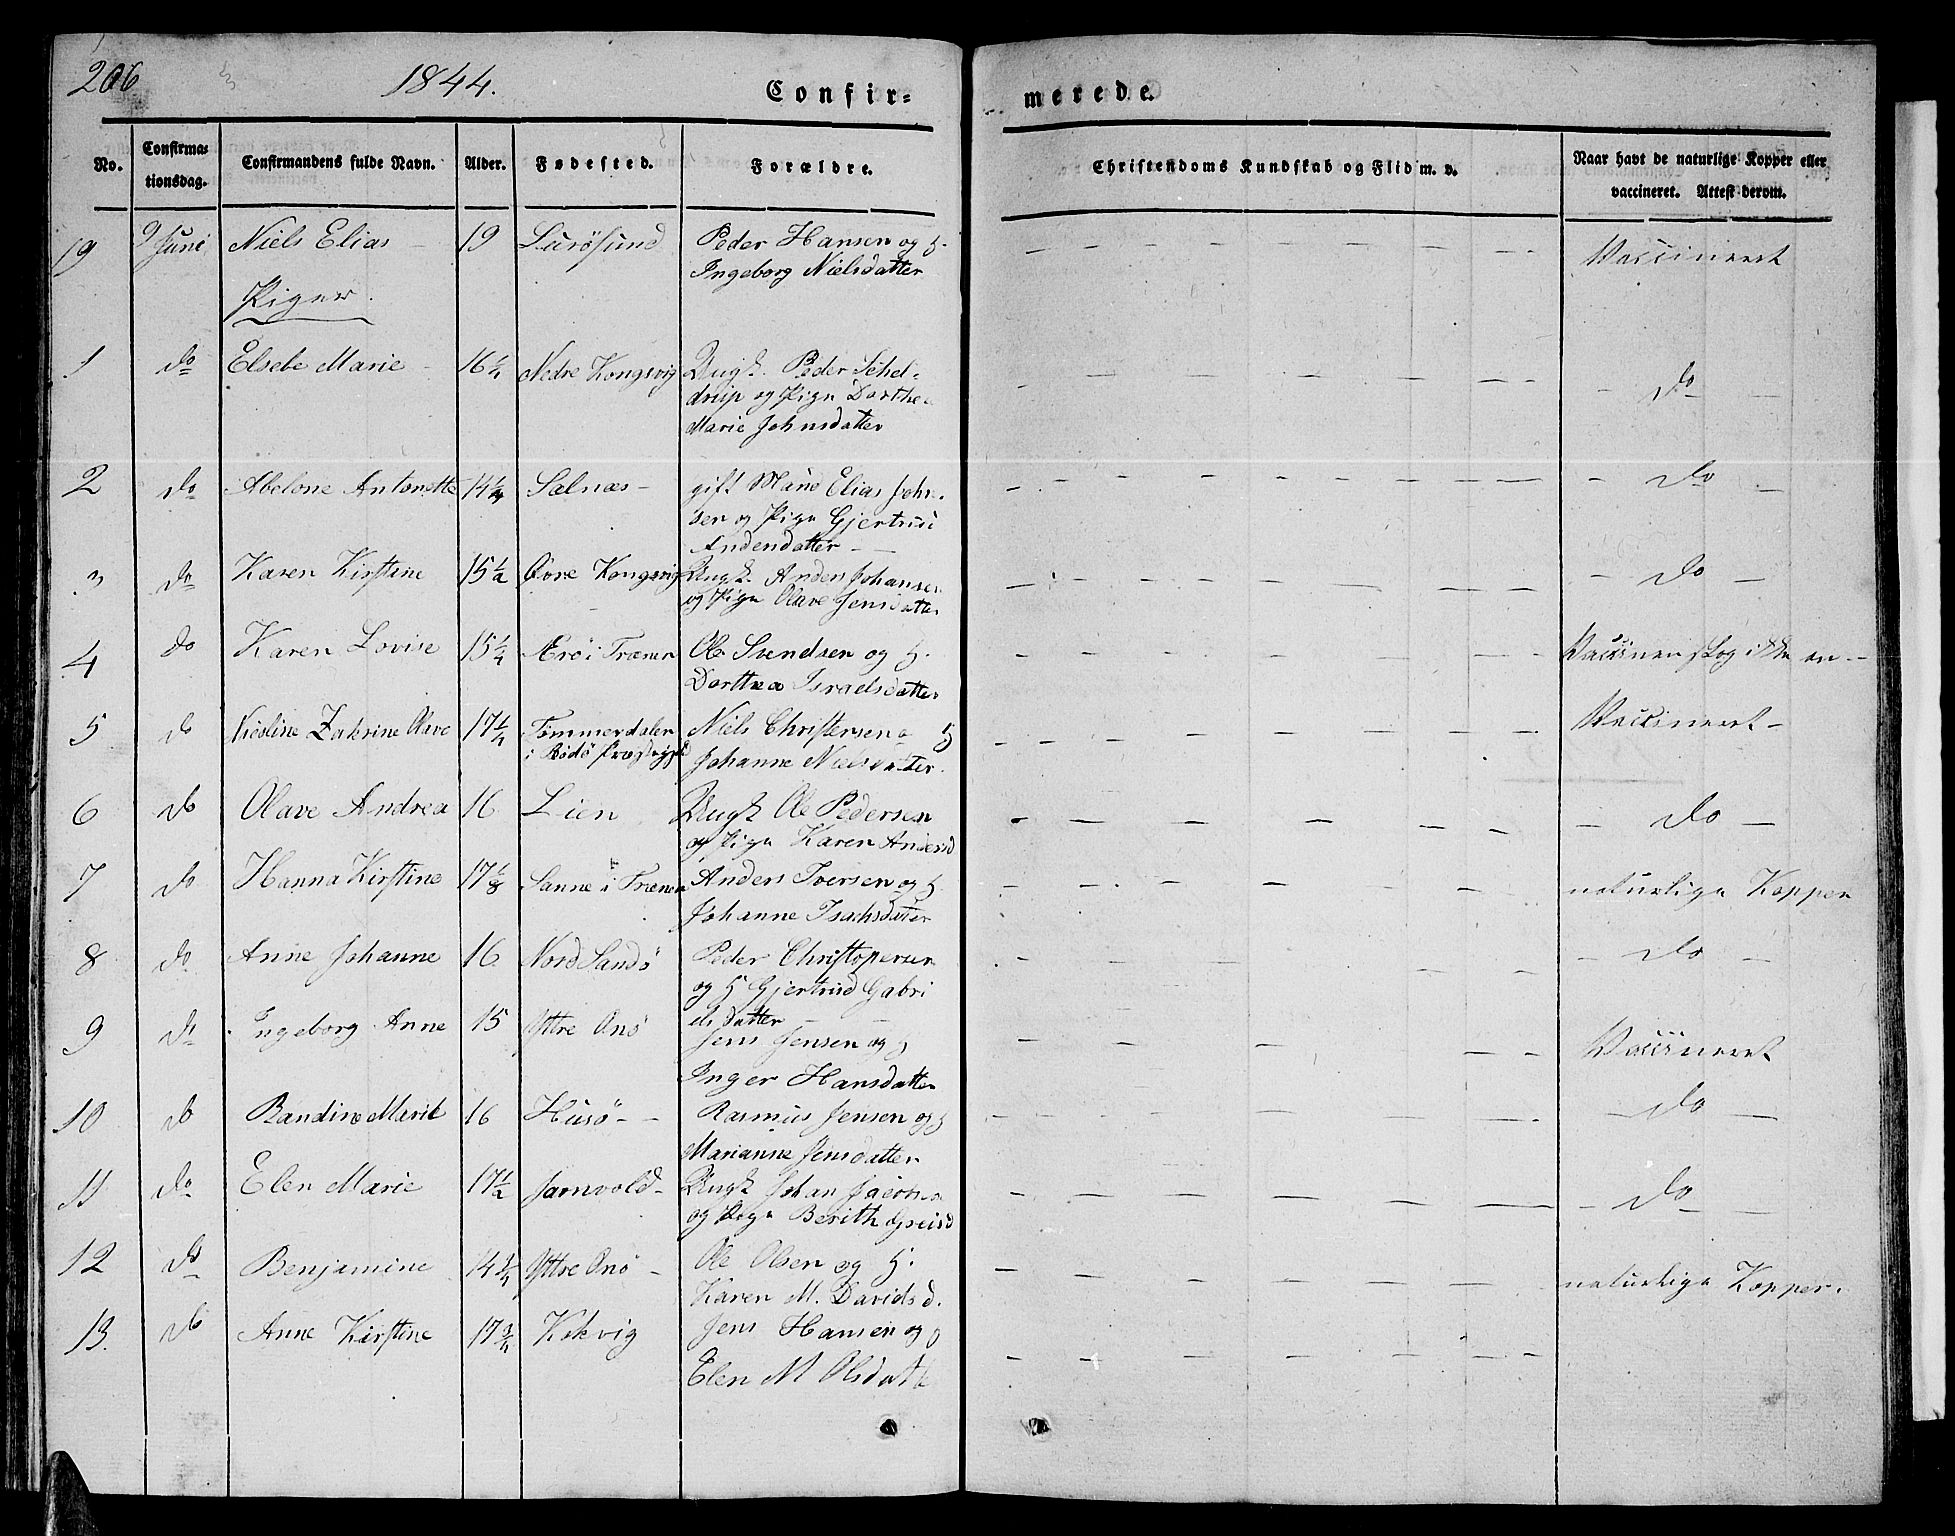 206 1844. Confir=
merede.
No. Confirma-
tionsdag. Confirmandens fulde Navn. Alder. Fødested. Forældre. Christendoms Kundskab og Flid m. v. Naar havt de naturlige Kopper eller
vaccineret. Attest derom.
19 9 Juni Niels Elias 19 Lurösund Peder Hansen og H.
Ingeborg Nielsdatter Vaccineret
Piger.
1 do Elsebe Marie 16 1/4 Nedre Kongsvig Ungk. Peder Schel-
drup og Pige Dorthe
Marie Johnsdatter do
2 do Abelone Antonette 14 1/4 Selnæs gift Mand Elias John-
sen og Pige Gjertrud
Andersdatter do
3 do Karen Kirstine 15 1/2 Övre Kongsvig Ungk. Anders Johansen
og Pige Olave Jensdatter do
4 do Karen Lovise 15 1/4 Ærö i Trænen Ole Svendsen og H.
Dorthea Israelsdatter Vaccinen slog ikke an
5 do Zakrine Olave 17 1/4 Tömmerdalen
i Bodö Præstegjeld Niels Christensen H
Johanne Nielsdatter Vaccineret
6 do Olave Andrea 16 Lien Ungk Ole Pedersen
og Pige Karen Andersd do
7 do Hanna Kirstine 17 1/8 Sanne i Trænen Anders Iversen og H.
Johanne Isachsdatter naturlige Kopper
8 do Anne Johanne 16 Nord Sandö Peder Christopersen
og H Gjertrud Gabri
els Datter do
9 do Ingeborg Anne 15 Yttre Onö Jens Jensen og H
Inger Hansdatter Vaccineret
10 do Bandine Marie 16 Husö Rasmus Jensen og H
Marianne Jensdatter do
11 do Elen Marie 17 1/2 Jarnvold Ungk Johan
og Pige Berith Greisd do
12 do Benjamine 14 3/4 Yttre Onö Ole Olsen og H.
Karen M. Davidsd. naturlige Kopper.
13. do Anne Kirstine 17 3/4 Kokvig Jens Hansen og H
Elen M Olsdatt